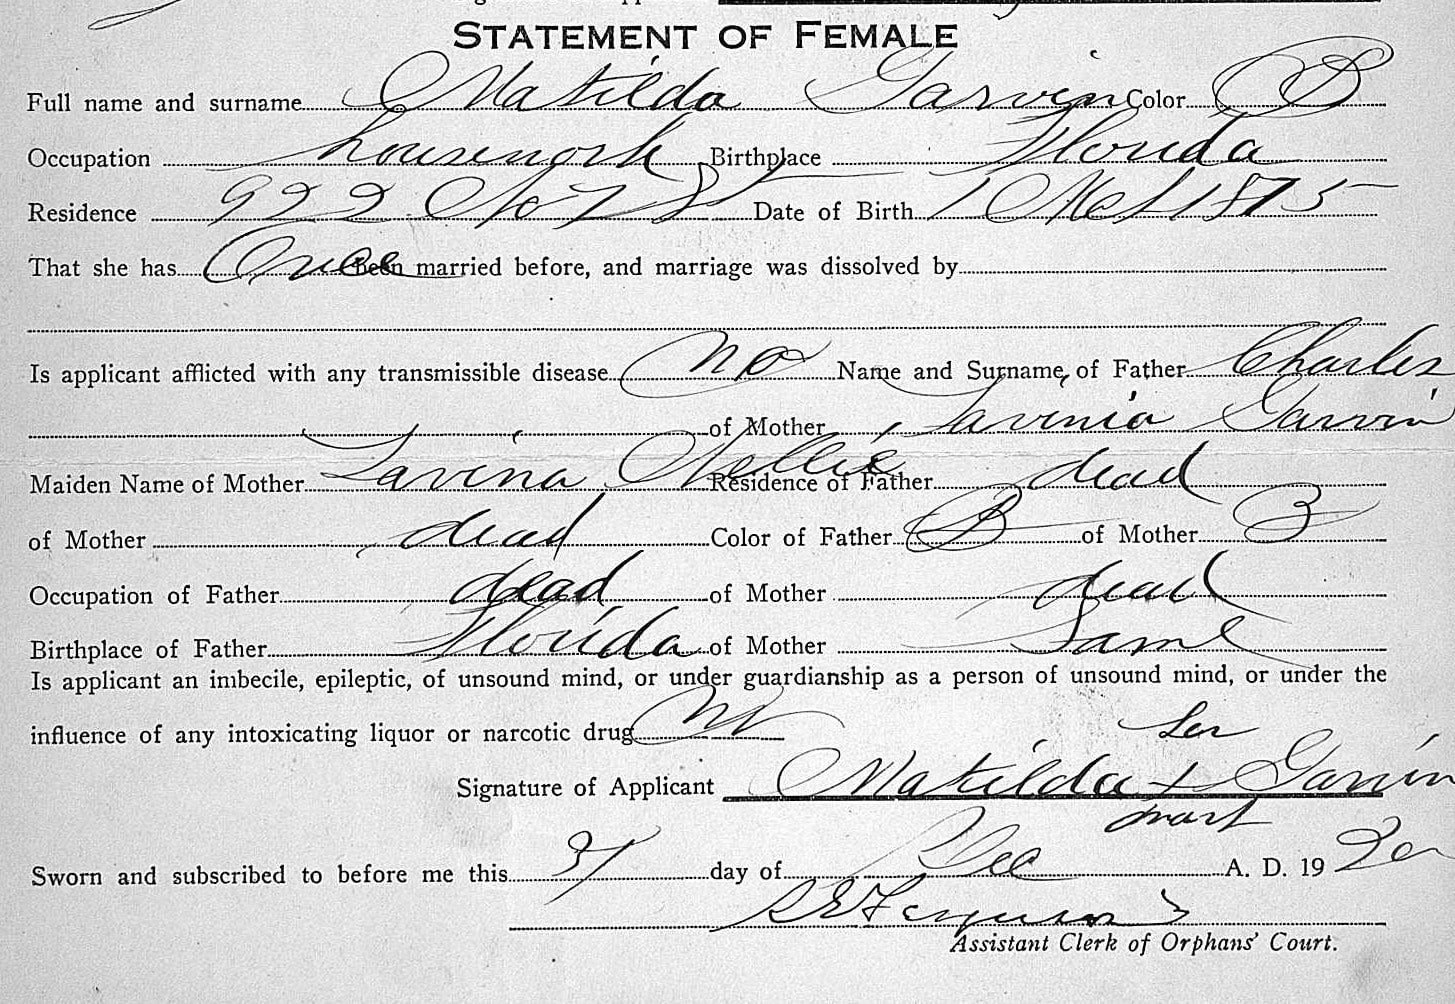 STATEMENT OF FEMALE
Full name and surname Matilda Garvin Color B
Occupation housework Birthplace Florida
Residence 922 No 7 St Date of Birth 1875
That she has Once been married before, and marriage was dissolved by
Is applicant afflicted with any transmissible disease no Name and Surname, of Father Charles
of Mother Lavinia Garvin
Maiden Name of Mother Lavina Nellie Residence of Father dead
of Mother dead Color of Father B of Mother B
Occupation of Father dead of Mother dead
Birthplace of Father Florida of Mother Same
Is applicant an imbecile, epileptic, of unsound mind, or under guardianship as a person of unsound mind, or under the
influence of any intoxicating liquor or narcotic drug no
her
Signature of Applicant Matilda + Garvin
mark
Sworn and subscribed to before me this 31 day of Dec A. D. 19 20
Ferguson
Assistant Clerk of Orphans' Court.